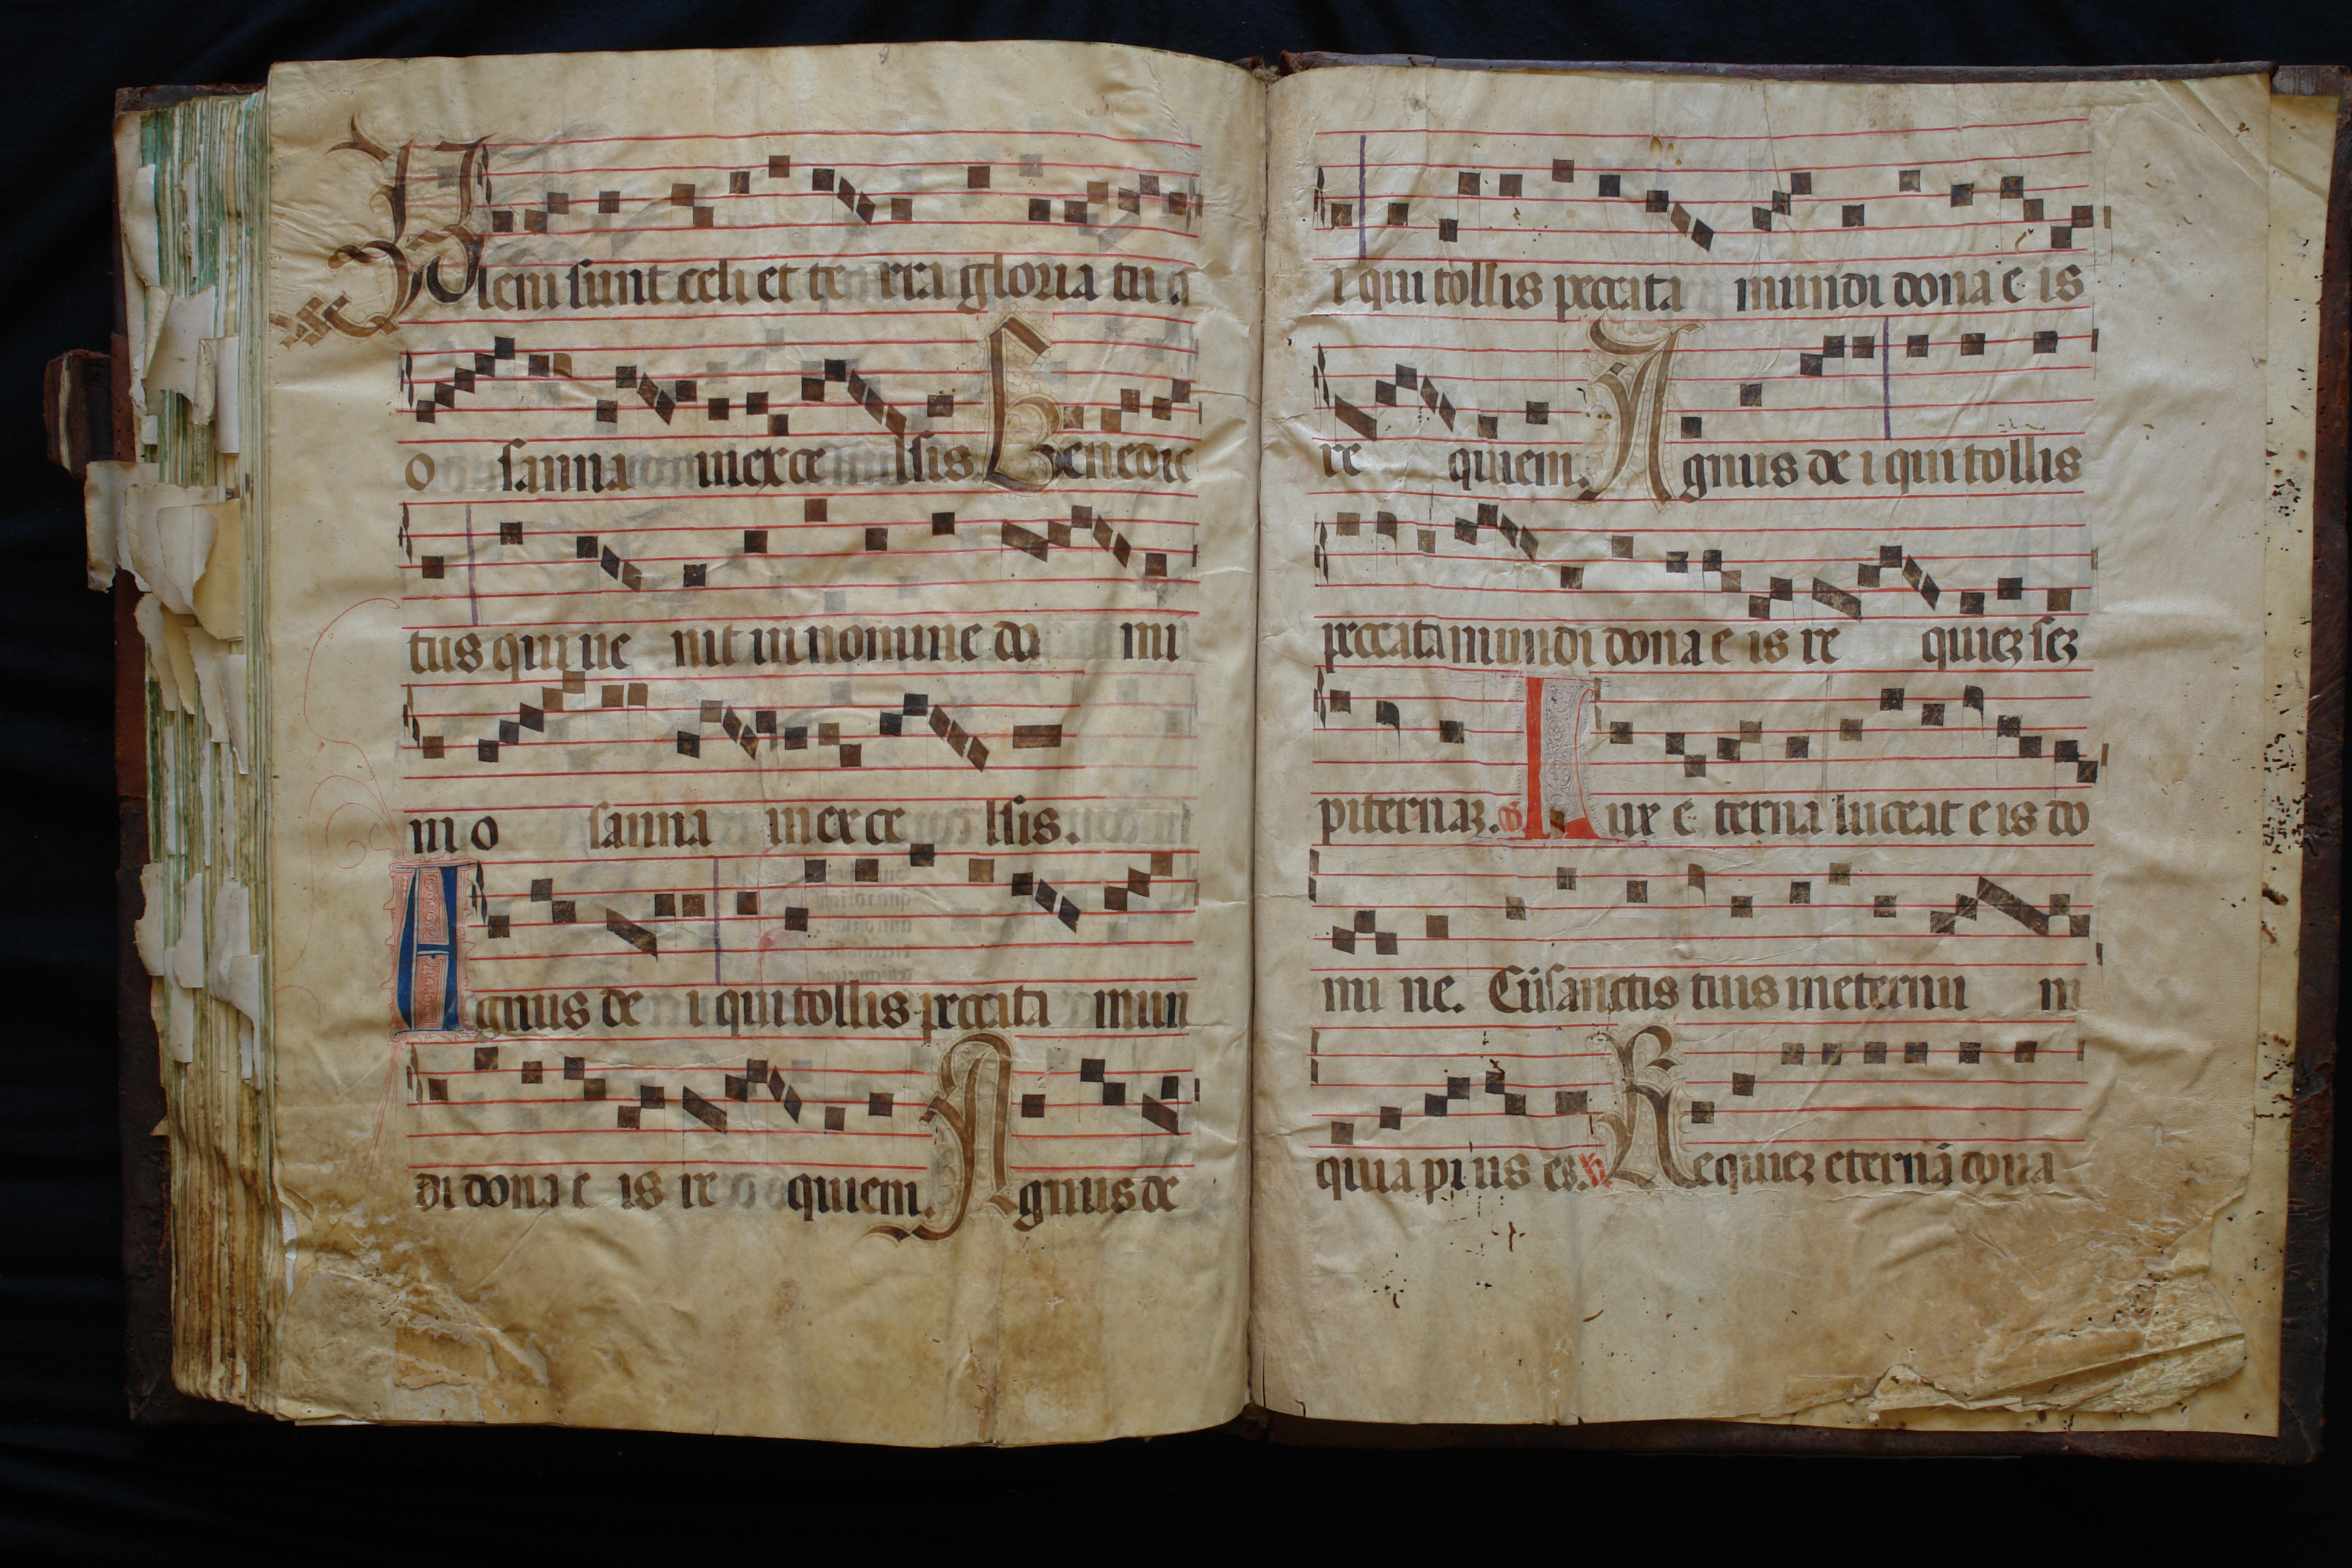 Pleni sunt celi et te rra gloria tu a
o sanna in exce lsis Benedic
tus qui ue nit in nomine do mi
ni o sanna in exce lsis.
Agnus de i qui tollis peccata mun
di dona e is re quiem. Agnus de
i qui tollis peccata mundi dona e is
re quiem. Agnus de i qui tollis
peccata mundi dona e is re quieꝫ seꝫ
piternaꝫ. Lux e terna luceat e is do
mi ne. Cū sanctis tuis in eternu m
quia pi us es. Requieꝫ eternā dona